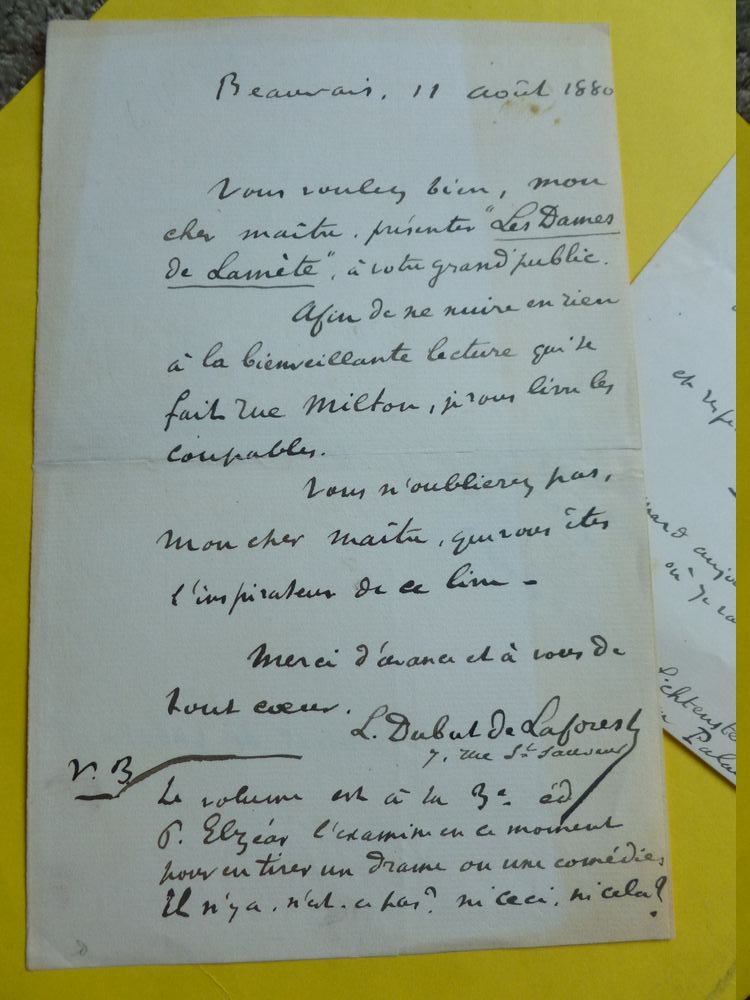 Beauvais, 11 août 1880
Vous voulez bien, mon
cher maître, présenter "Les Dames
de Lamète", à votre grand public.
Afin de ne nuire en rien
à la bienveillante lecture qui se
fait rue Milton, je vous livre les
coupables.
Vous n'oublierez pas,
mon cher maître, que vous êtes
l'inspirateur de ce livre -
Merci d'avance et à vous de
tout cœur.
L. Dubut de Laforest
7, rue St Sauveur
V. B
Le volume est à la 3e éd
P. Elzéar l'examine en ce moment
pour en tirer un drame ou une comédie.
Il n'y a, n'est-ce pas? ni ceci, ni cela?
et
aujou
où je
Lichtenste
Pala